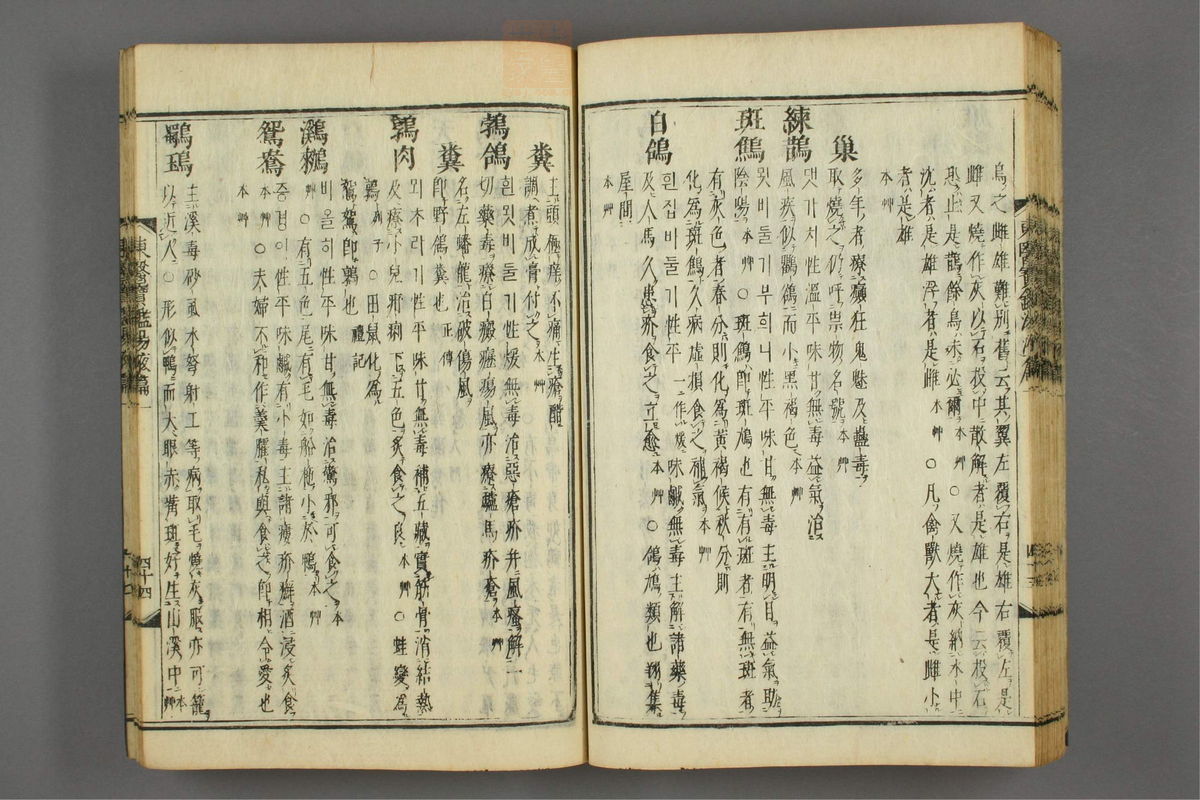 烏之雌雄難別舊云其翼左覆右是雄右覆左是
雌又燒作灰以石投中散解者是雄也今云投石
恐止是鵲餘鳥未必爾本艸○又燒作灰納水中
沈者是雄浮者是雌本艸○凡禽獸大者是雌小
者是雄
本艸
巢
多年者療癲狂鬼魅及蠱毒
取燒之仍呼祟物名號本艸
練鵲
댓가치性溫平味甘無毒益氣治
風疾似鸜鵒而小黑褐色本艸
斑鷦
묏비둘기부희니性平味甘無毒主明目益氣助
陰陽本艸○斑鷦卽斑鳩也有有斑者有無斑者
有灰色者春分則化爲黃褐候秋分則
化爲斑鷦久病虛損食之補氣本艸
白鴿
흰집비둘기性平一作煖味鹹無毒主解諸藥毒
及人馬久患疥食之立愈本艸○鴿鳩類也翔集
屋間
本艸
糞
主頭極痒不痛生瘡醋
調煮成膏付之本艸
鵓鴿
흰묏비둘기性煖無毒治惡瘡疥幷風瘙解一
切藥毒療白癜癧瘍風亦療驢馬疥瘡本艸
糞
名左蟠龍治破傷風
卽野鴿糞也正傳
鶉肉
뫼초라기性平味甘無毒補五藏實筋骨消結熱
及療小兒疳痢下五色炙食之良本艸○蛙變爲
鶉列子○田鼠化爲
鴽鴽卽鶉也禮記
鸂鷘
비올히性平味甘無毒治驚邪可食之本
艸○有五色尾有毛如船柁小於鴨本艸
鴛鴦
증경이性平味鹹有小毒主諸瘻疥癬酒浸炙食
本艸○夫婦不和作羹臛私與食之卽相令愛也
本艸
鸀鳿
主溪毒砂虱水弩射工等病取毛燒灰服亦可籠
以近人○形似鴨而大眼赤觜斑好生山溪中本艸
東醫寶鑑湯液篇一
四十四